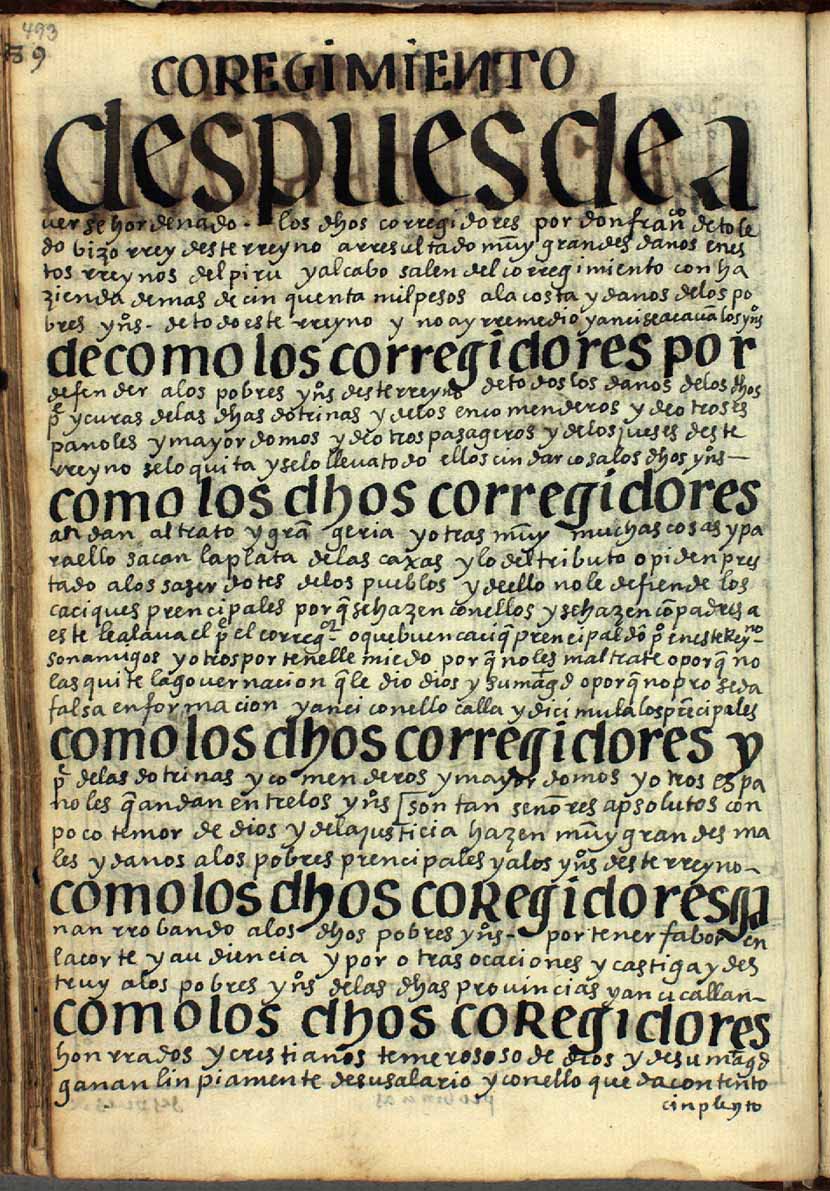 493
89
COREGIMIENTO
despues de a
uerse hordenado - los dhos corregidores por don franco de tole
do bizorrey deste rreyno a rresultado muy grandes daños en es
tos rreynos del piru y al cabo salen del corregimiento con ha
zienda de mas de cinquenta mil pesos a la costa y daños de los po
bres yns - de todo este rreyno y no ay rremedio y anci se acauan los yns
de como los corregidores por
defender a los pobres yns deste rreyno de todos los daños de los dhos
pe y curas de las dhas dotrinas y de los encomenderos y de otros es
pañoles y mayordomos y de otros pasageros y de los jueses deste
rreyno se lo quita y se lo lleua todo ellos cin dar cosa a los dhos yns
como los dhos corregidores
andan al trato y grangeria y otras muy muchas cosas y pa
ra ello sacan la plata de las caxas y lo del tributo o piden pres
tado a los saserdotes de los pueblos y de ello no le defiende los
caciques prencipales porq se hazen con ellos y se hazen conpadres a
este le alaua el pe el corregor o que buen caciq prencipal don po en este rreyno
son amigos y otros por tenelle miedo por q no les maltrate o porq no
las quite la gouernacion q le dio dios y su magd o porq no proseda
falsa enformacion y anci con ello calla y dicimula los prencipales
como los dhos corregidores y
pe de las dotrinas y comenderos y mayordomos y otros espa
ñoles q andan entre los yns [son tan señores apsolutos con
poco temor de dios y de la justicia hazen muy grandes ma
les y daños a los pobres prencipales y a los yns deste rreyno
como los dhos coRegidores ga
nan rrobando a los dhos pobres yns - por tener fabor en
la corte y audiencia y por otras ocaciones y castiga y des
truy a los pobres yns de las dhas prouincias y anci callan
como los dhos coRegidores
honrrados y crestianos temerososo de dios y de su magd
ganan linpiamente de su salario y con ello queda contento
cin pleyto